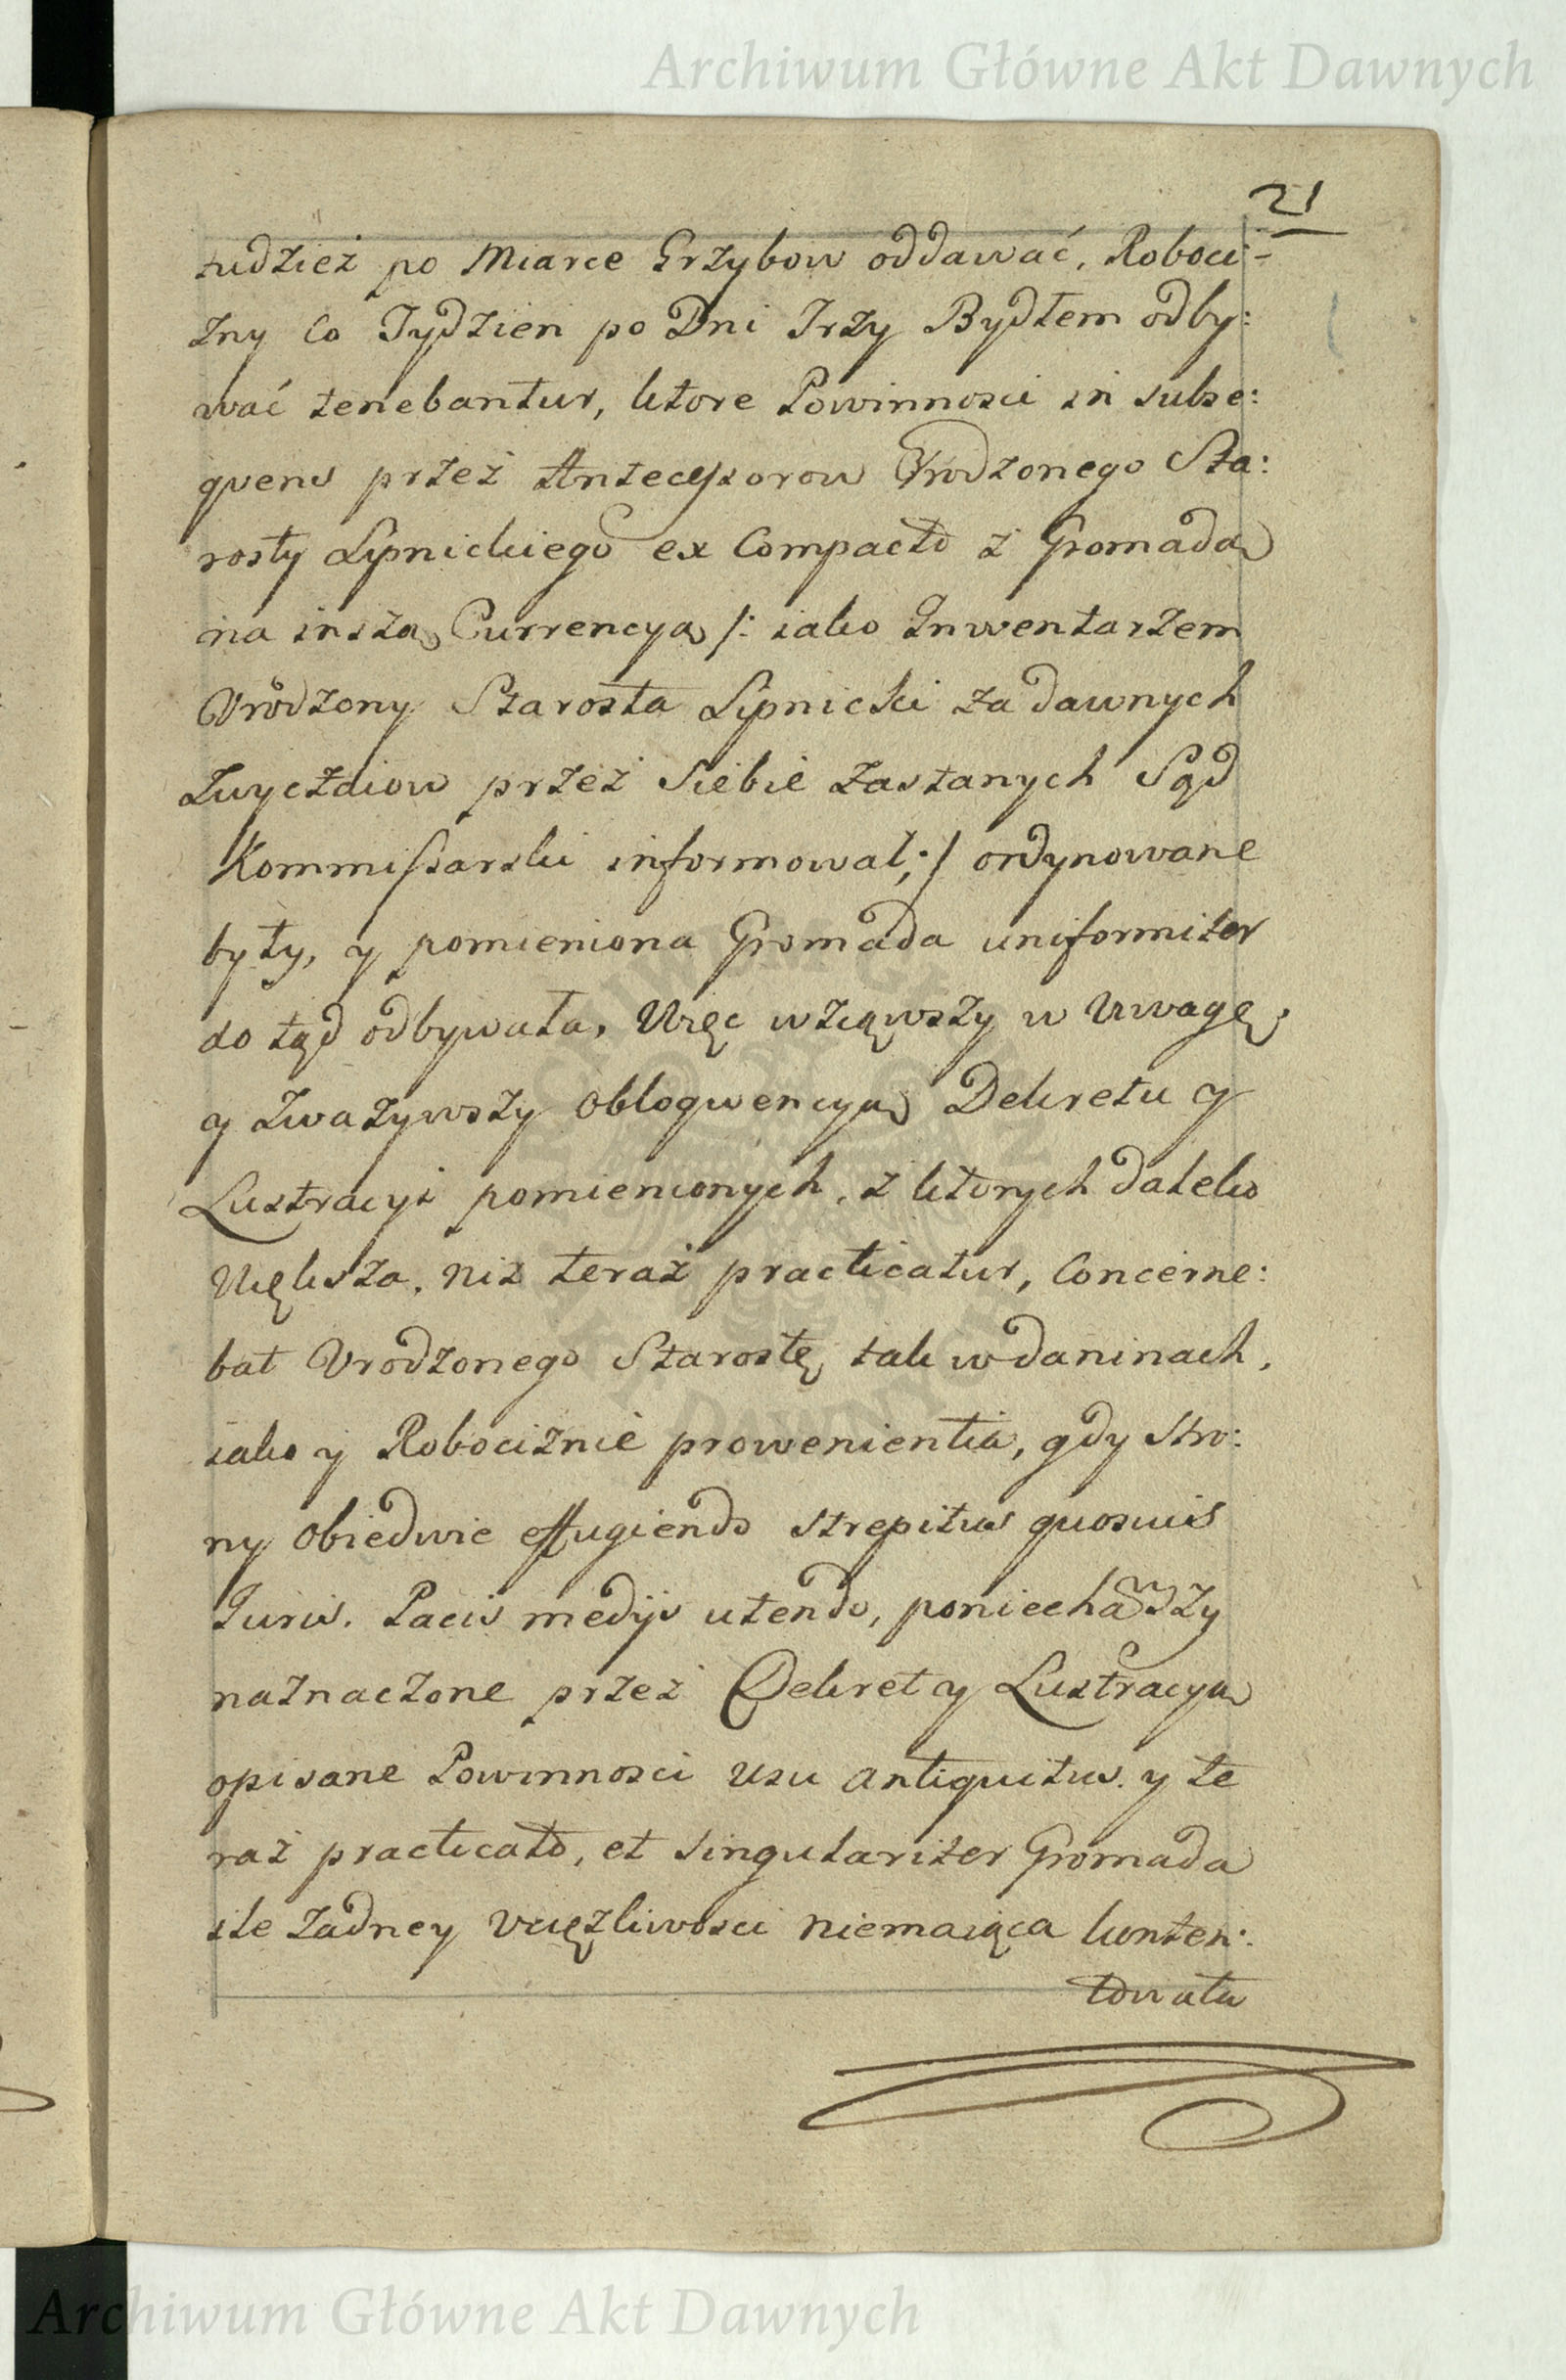 Archiwum Główne Akt Dawnych
21
tudzież po Miarce Grzybow oddawać, Roboci-
zny Co Tydzien po Dni Trzy Bydłem odby:
wać tenebantur, ktore Powinnosci in subse:
quens przez Antecessorow Urodzonego Sta:
rosty Lipnickiego ex Compacto z Gromadą
na inszą Currencyą /: iako Inwentarzem
Urodzony Starosta Lipnicki za dawnych
Zwyczaiow przez Siebie zastanych Sąd
Kommissarski informował, :/ ordynowane
były, y pomieniona Gromada uniformiter
do tąd odbywała, Więc wziąwszy w Uwagę,
y zważywszy obloqwencyą Dekretu y
Lustracyi pomienionych, z ktorych daleko
Większa, niż teraz practicatur, Concerne:
bat Urodzonego Starostę tak w daninach,
iako y Robociznie prowenientia, gdy Stro:
ny Obiedwie effugiendo strepitus quosuis
Iuris. Pacis medijs utendo, poniechawszy
naznaczone przez Dekret y Lustracyą
opisane Powinnosci usu antiquitus. y te
raz practicato, et singulariter Gromada
ile żadney Uciężliwosci niemaiąca konten:
towała
Archiwum Główne Akt Dawnych